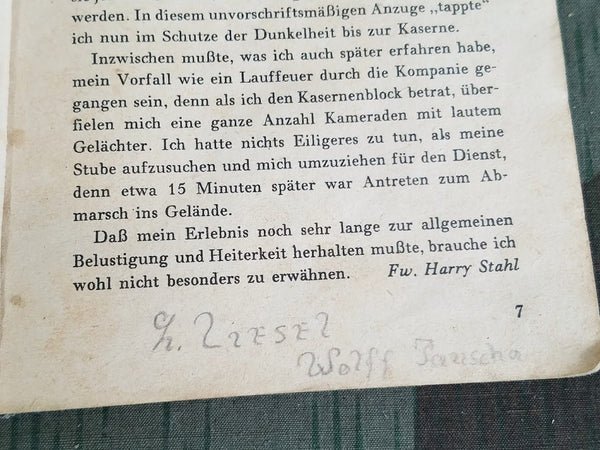 werden. In diesem unvorschriftsmäßigen Anzuge „tappte“
ich nun im Schutze der Dunkelheit bis zur Kaserne.
Inzwischen mußte, was ich auch später erfahren habe,
mein Vorfall wie ein Lauffeuer durch die Kompanie ge-
gangen sein, denn als ich den Kasernenblock betrat, über-
fielen mich eine ganze Anzahl Kameraden mit lautem
Gelächter. Ich hatte nichts Eiligeres zu tun, als meine
Stube aufzusuchen und mich umzuziehen für den Dienst,
denn etwa 15 Minuten später war Antreten zum Ab-
marsch ins Gelände.
Daß mein Erlebnis noch sehr lange zur allgemeinen
Belustigung und Heiterkeit herhalten mußte, brauche ich
wohl nicht besonders zu erwähnen. Fw. Harry Stahl
7
Wolff